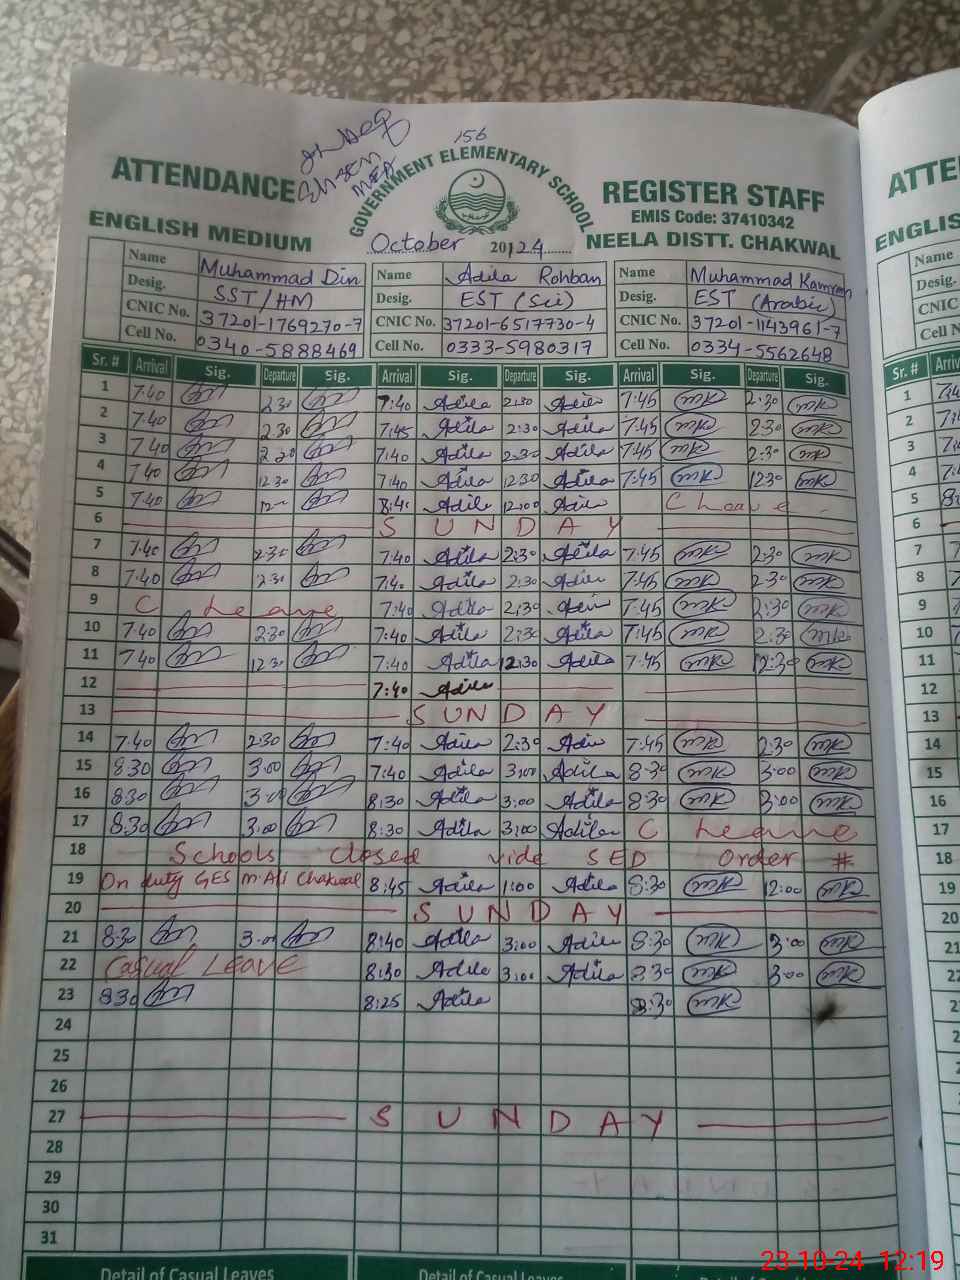 156
ATTENDANCE
GOVERNMENT ELEMENTARY SCHOOL
REGISTER STAFF
EMIS Code: 37410342
ENGLISH MEDIUM
October 2024
NEELA DISTT. CHAKWAL
Name Muhammad Din Name Adila Rohban Name Muhammad Kamran
Desig. SST/HM Desig. EST (Sci) Desig. EST (Arabic)
CNIC No. 37201-1769270-7 CNIC No. 37201-6517730-4 CNIC No. 37201-1143961-7
Cell No. 0340-5888469 Cell No. 0333-5980317 Cell No. 0334-5562648
Sr. # Arrival Sig. Departure Sig. Arrival Sig. Departure Sig. Arrival Sig. Departure Sig.
1 7:40 2:30 7:40 Adila 2:30 Adila 7:45 MK 2:30 MK
2 7:40 2:30 7:45 Adila 2:30 Adila 7:45 MK 2:30 MK
3 7:40 7:40 Adila 2:30 Adila 7:45 MK 2:30 MK
4 7:40 12:30 7:40 Adila 12:30 Adila 7:45 MK 12:30 MK
5 7:40 Adila 12:00 Adila C Leave
6 SUNDAY
7 7:40 2:30 7:40 Adila 2:30 Adila 7:45 MK 2:30 MK
8 7:40 2:30 7:40 Adila 2:30 Adila 7:45 MK 2:30 MK
9 C Leave 7:40 Adila 2:30 Adila 7:45 MK 2:30 MK
10 7:40 2:30 7:40 Adila 2:30 Adila 7:45 MK 2:30 MK
11 7:40 12:30 7:40 Adila 12:30 Adila 7:45 MK 12:30 MK
12 7:40 Adila
13 SUNDAY
14 7:40 2:30 7:40 Adila 2:30 Adila 7:45 MK 2:30 MK
15 8:30 3:00 7:40 Adila 3:00 Adila 8:30 MK 3:00 MK
16 8:30 3:00 8:30 Adila 3:00 Adila 8:30 MK 3:00 MK
17 8:30 3:00 8:30 Adila 3:00 Adila C Leave
18 Schools closed vide SED order #
19 On duty GES M.Ali Chakwal 8:45 Adila 1:00 Adila 8:30 MK 12:00 MK
20 SUNDAY
21 8:30 3:00 8:40 Adila 3:00 Adila 8:30 MK 3:00 MK
22 Casual Leave 8:30 Adila 3:00 Adila 8:30 MK 3:00 MK
23 8:30 8:25 Adila 8:30 MK
24
25
26
27 SUNDAY
28
29
30
31
Detail of Casual Leaves Detail of Casual Leaves
ATTE
ENGLIS
Name
Desig.
CNIC N
Cell N
Sr. # Arriv
1
2
3
4
5
6
7
8
9
10
11
12
13
14
15
16
17
18
19
20
21
22
23-10-24 12:19